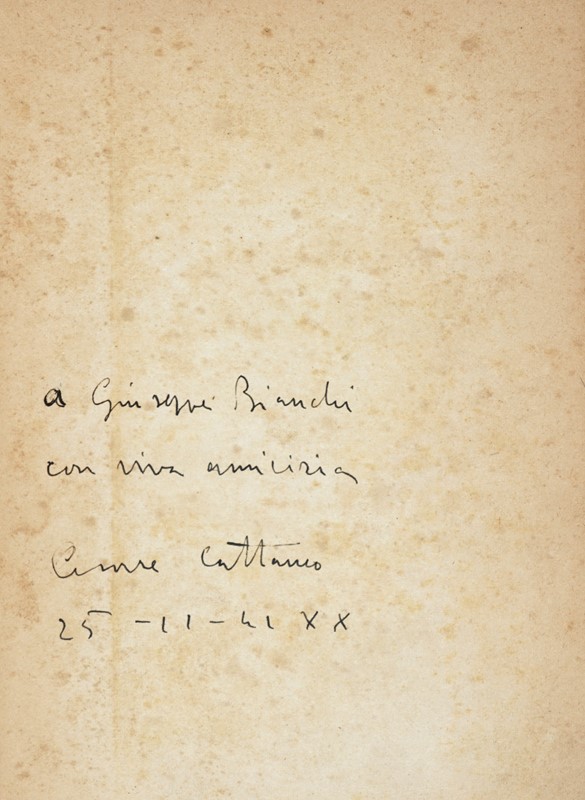 a Giuseppe Bianchi
con viva amicizia
Cesare Cattaneo
25 -11-41 XX